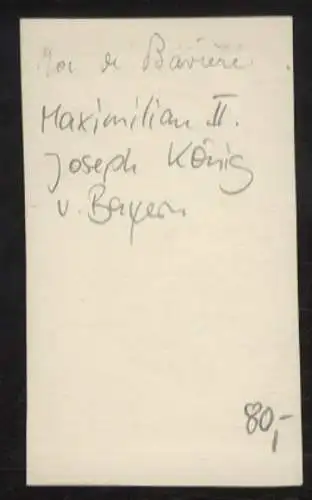 Roi de Bavière.
Maximilian II.
Joseph König
v. Bayern
80,-